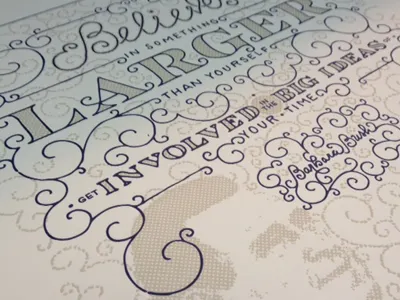 Believe
IN SOMETHING
LARGER
THAN YOURSELF
GET INVOLVED IN THE BIG IDEAS
OF YOUR TIME
Barbara Bush